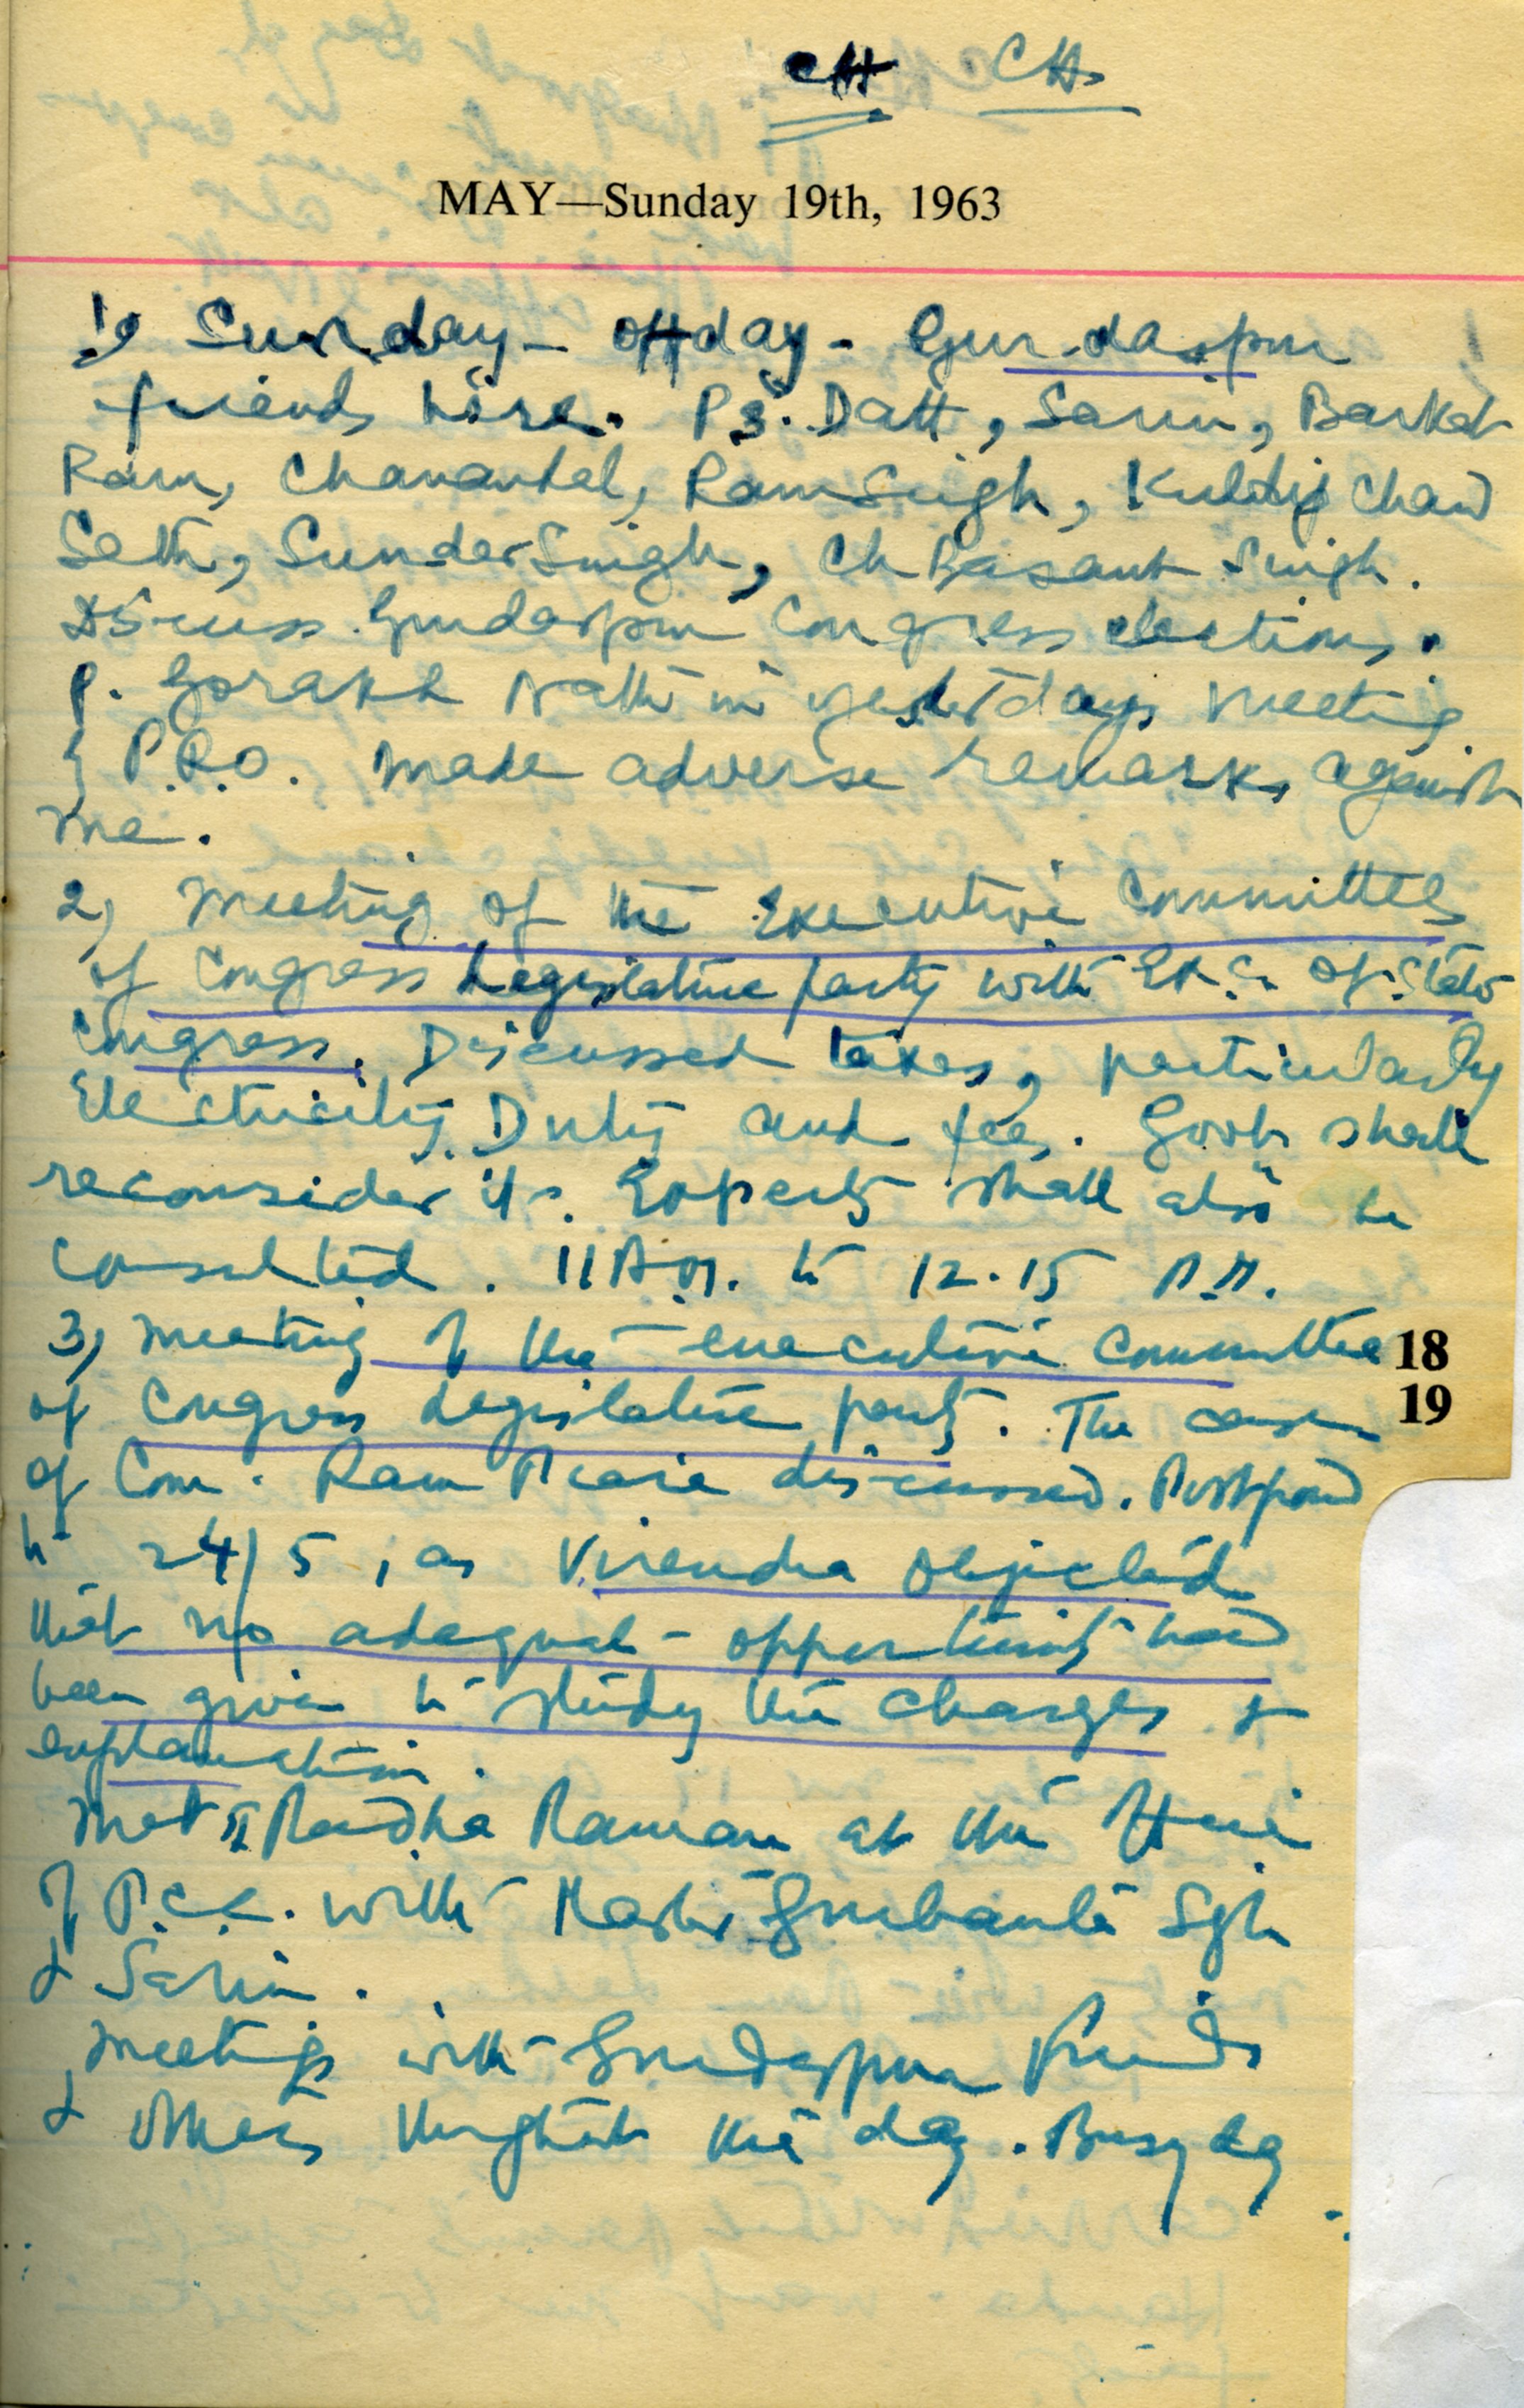 CH CH
MAY—Sunday 19th, 1963
1, Sunday - Offday - Gurdaspur
friends here. P.S. Datt, Sarin, Barkat
Ram, Chamanlal, Ram Singh, Kuldip Chand
Seth, Sunder Singh, Ch Basant Singh.
Discuss Gurdaspur Congress elections.
P. Gorakh Nath in yesterdays meeting
P.R.O. made adverse remarks against
me.
2, Meeting of the Executive Committee
of Congress Legislative party with Ex. C. of State
Congress. Discussed taxes, particularly
Electricity Duty and fees. Govt shall
reconsider it. Experts shall also be
consulted. 11 A.M. to 12.15 P.M.
3, Meeting of the executive Committee 18
of Congress Legislative party. The case 19
of Com. Ram Piara discussed. Postponed
to 24/5, as Virendra objected
that no adequate opportunity had
been given to study the charges &
explanation.
Met Radha Raman at the office
of P.C.C. with Master Gurbanta Sgh
& Sarin.
Meetings with Gurdaspur friends
& others throughout the day. Busy day